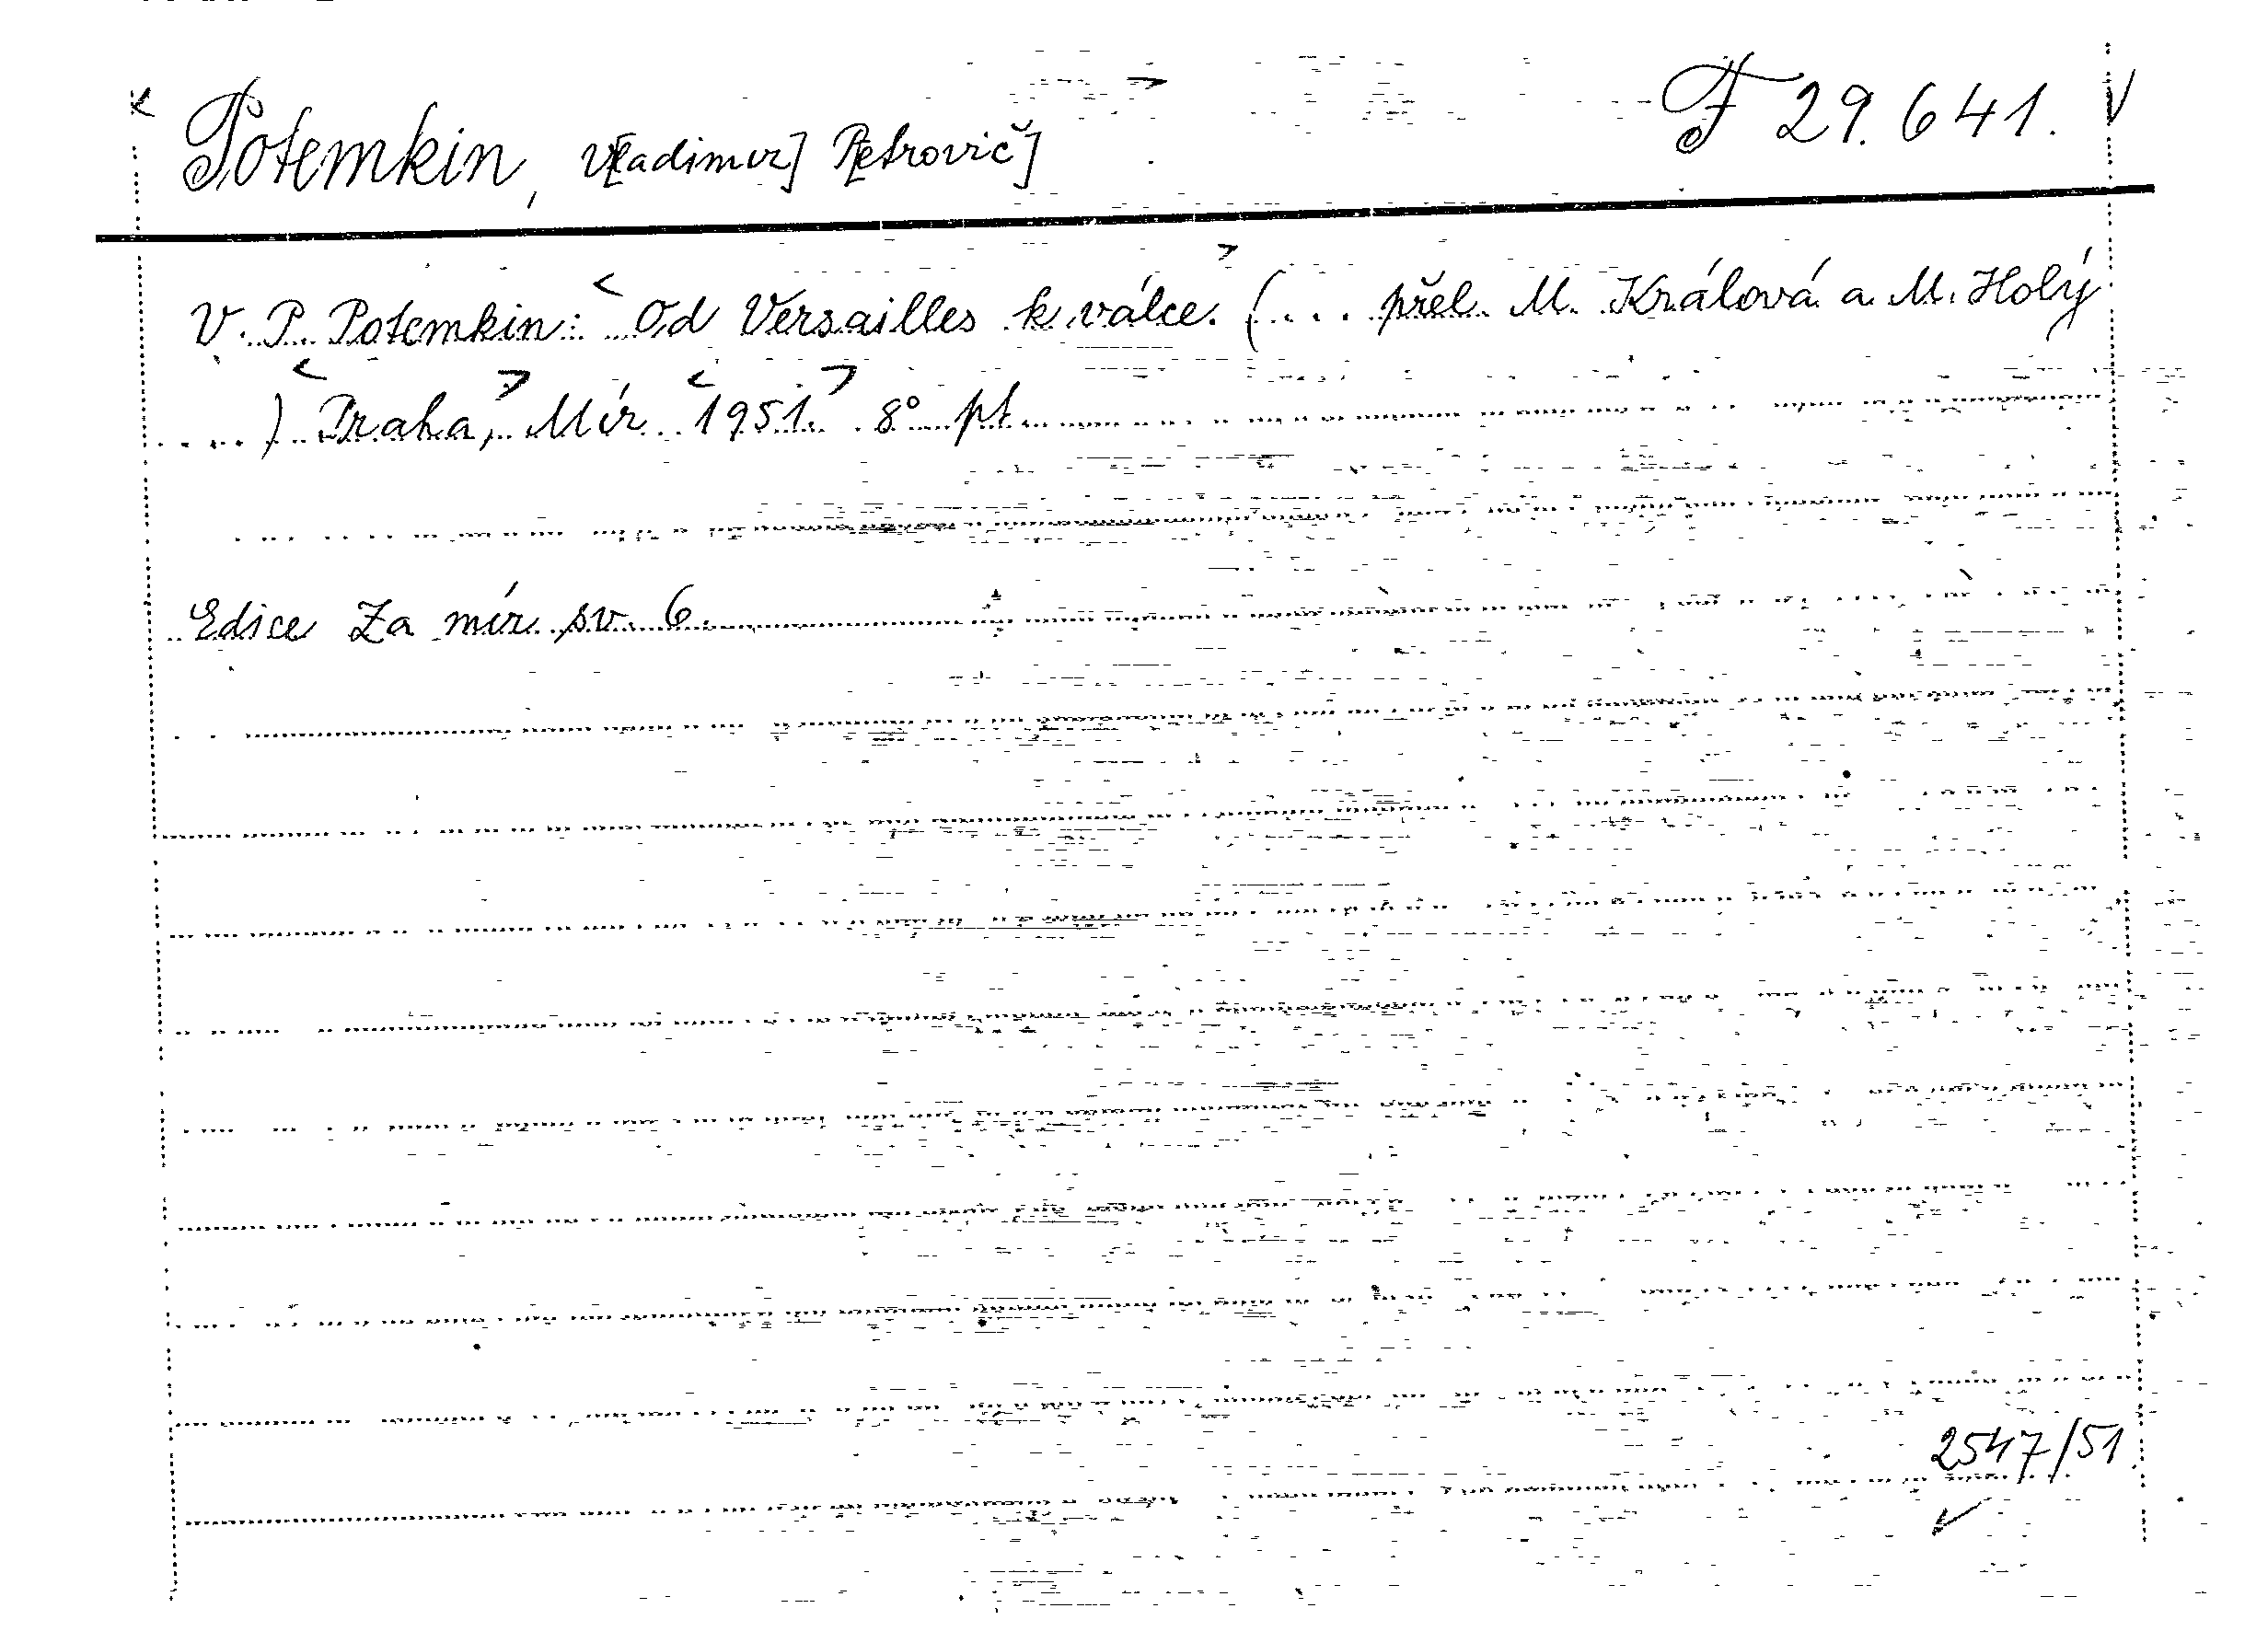 Potemkin, V[ladimir] P[etrovič] F 29.641.
V. P. Potemkin: Od Versailles k válce. (... přel. M. Králová a M. Holý
....) Praha, Mír 1951. 8° pl.
Edice Za mír sv. 6.
2547/51